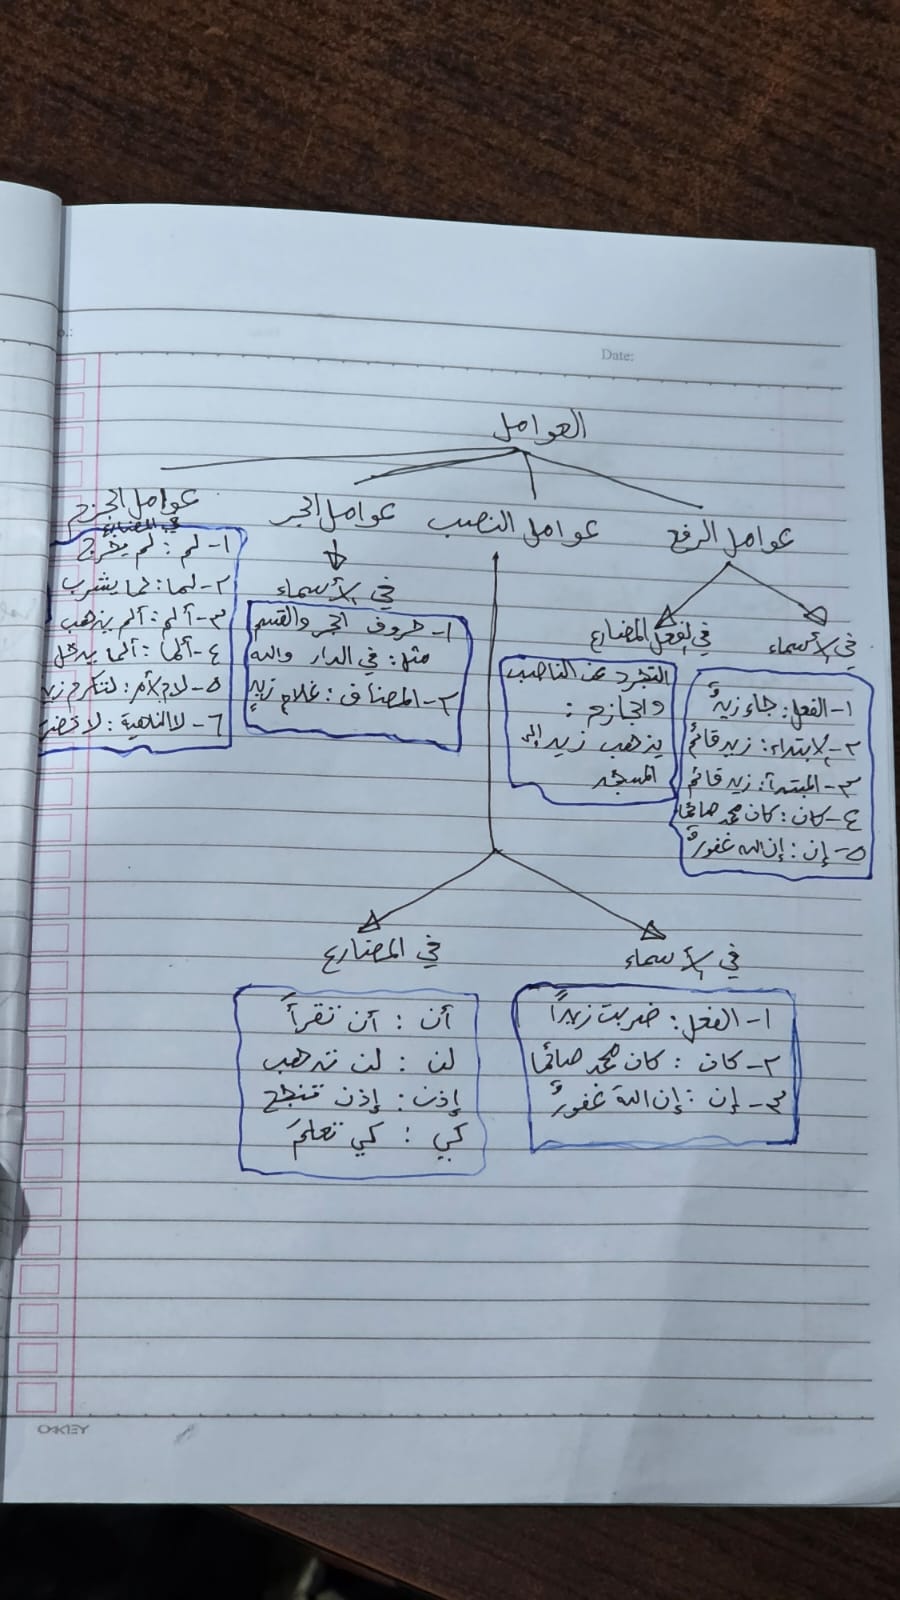 Date:
العوامل
عوامل الرفع
في الأسماء
١- الفعل: جاء زيدٌ
٢- الابتداء: زيد قائمٌ
٣- المبتدأ: زيد قائم
٤- كان: كان محمد صائما
٥- إن: إن الله غفورٌ
في الفعل المضارع
التجرد عن الناصب
والجازم:
يذهب زيد إلى
المسجد
عوامل النصب
في الأسماء
١- الفعل: ضربت زيداً
٢- كان: كان محمد صائما
٣- إن: إن اللهَ غفورٌ
في المضارع
أن: أن تقرأَ
لن: لن تذهب
إذن: إذن تنجح
كي: كي تعلمَ
عوامل الجر
في الأسماء
١- حروف الجر والقسم
مثل: في الدار والله
٢- المضاف: غلام زيدٍ
عوامل الجزم
في المضارع
١- لم: لم يخرج
٢- لما: لما يشرب
٣- ألم: ألم يذهب
٤- ألما: ألما يدخل
٥- لام الأمر: لتكرم زيد
٦- لا الناهية: لا تحضر
OAKLEY